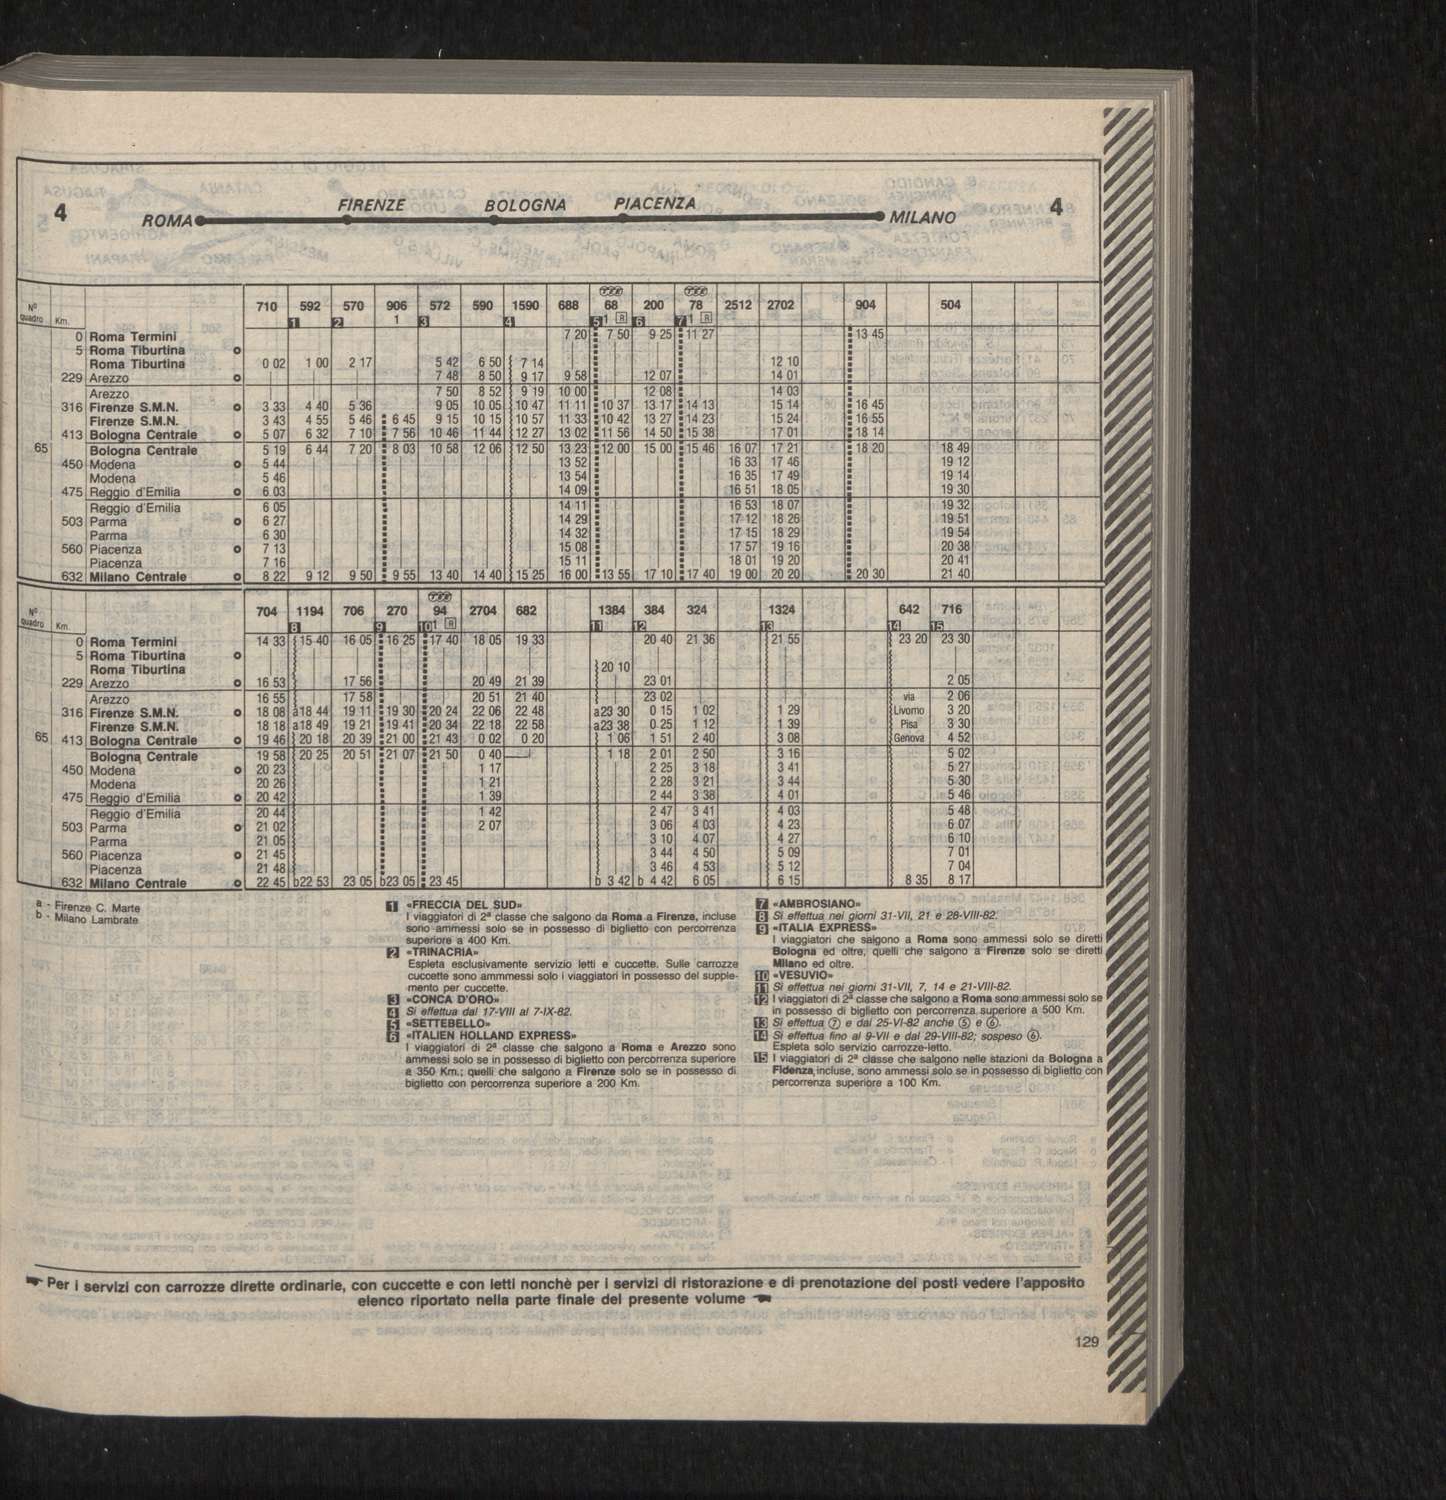 4 ROMA FIRENZE BOLOGNA PIACENZA MILANO 4
Nº quadro Km. 710 592 570 906 572 590 1590 688 68 200 78 2512 2702 904 504
1 2 1 3 4 5 1 R 6 7 1 R
0 Roma Termini 7 20 7 50 9 25 11 27 13 45
5 Roma Tiburtina o
Roma Tiburtina 0 02 1 00 2 17 5 42 6 50 7 14 12 10
229 Arezzo o 7 48 8 50 9 17 9 58 12 07 14 01
Arezzo 7 50 8 52 9 19 10 00 12 08 14 03
316 Firenze S.M.N. o 3 33 4 40 5 36 9 05 10 05 10 47 11 11 10 37 13 17 14 13 15 14 16 45
Firenze S.M.N. 3 43 4 55 5 46 6 45 9 15 10 15 10 57 11 33 10 42 13 27 14 23 15 24 16 55
413 Bologna Centrale o 5 07 6 32 7 10 7 56 10 46 11 44 12 27 13 02 11 56 14 50 15 38 17 01 18 14
65 Bologna Centrale 5 19 6 44 7 20 8 03 10 58 12 06 12 50 13 23 12 00 15 00 15 46 16 07 17 21 18 20 18 49
450 Modena o 5 44 13 52 16 33 17 46 19 12
Modena 5 46 13 54 16 35 17 49 19 14
475 Reggio d'Emilia o 6 03 14 09 16 51 18 05 19 30
Reggio d'Emilia 6 05 14 11 16 53 18 07 19 32
503 Parma o 6 27 14 29 17 12 18 26 19 51
Parma 6 30 14 32 17 15 18 29 19 54
560 Piacenza o 7 13 15 08 17 57 19 16 20 38
Piacenza 7 16 15 11 18 01 19 20 20 41
632 Milano Centrale o 8 22 9 12 9 50 9 55 13 40 14 40 15 25 16 00 13 55 17 10 17 40 19 00 20 20 20 30 21 40
Nº quadro Km. 704 1194 706 270 94 2704 682 1384 384 324 1324 642 716
8 9 10 1 R 11 12 13 14 15
0 Roma Termini 14 33 15 40 16 05 16 25 17 40 18 05 19 33 20 40 21 36 21 55 23 20 23 30
5 Roma Tiburtina o
Roma Tiburtina 20 10
229 Arezzo o 16 53 17 56 20 49 21 39 23 01 2 05
Arezzo 16 55 17 58 20 51 21 40 23 02 via 2 06
316 Firenze S.M.N. o 18 08 a18 44 19 11 19 30 20 24 22 06 22 48 a23 30 0 15 1 02 1 29 Livorno 3 20
Firenze S.M.N. 18 18 a18 49 19 21 19 41 20 34 22 18 22 58 a23 38 0 25 1 12 1 39 Pisa 3 30
65 413 Bologna Centrale o 19 46 20 18 20 39 21 00 21 43 0 02 0 20 1 06 1 51 2 40 3 08 Genova 4 52
Bologna Centrale 19 58 20 25 20 51 21 07 21 50 0 40 1 18 2 01 2 50 3 16 5 02
450 Modena o 20 23 1 17 2 25 3 18 3 41 5 27
Modena 20 26 1 21 2 28 3 21 3 44 5 30
475 Reggio d'Emilia o 20 42 1 39 2 44 3 38 4 01 5 46
Reggio d'Emilia 20 44 1 42 2 47 3 41 4 03 5 48
503 Parma o 21 02 2 07 3 06 4 03 4 23 6 07
Parma 21 05 3 10 4 07 4 27 6 10
560 Piacenza o 21 45 3 44 4 50 5 09 7 01
Piacenza 21 48 3 46 4 53 5 12 7 04
632 Milano Centrale o 22 45 b22 53 23 05 b23 05 23 45 b 3 42 b 4 42 6 05 6 15 8 35 8 17
a - Firenze C. Marte
b - Milano Lambrate
1 «FRECCIA DEL SUD»
I viaggiatori di 2ª classe che salgono da Roma a Firenze, incluse
sono ammessi solo se in possesso di biglietto con percorrenza
superiore a 400 Km.
2 «TRINACRIA»
Espleta esclusivamente servizio letti e cuccette. Sulle carrozze
cuccette sono ammmessi solo i viaggiatori in possesso del supple-
mento per cuccette.
3 «CONCA D'ORO»
4 Si effettua dal 17-VIII al 7-IX-82.
5 «SETTEBELLO»
6 «ITALIEN HOLLAND EXPRESS»
I viaggiatori di 2ª classe che salgono a Roma e Arezzo sono
ammessi solo se in possesso di biglietto con percorrenza superiore
a 350 Km.; quelli che salgono a Firenze solo se in possesso di
biglietto con percorrenza superiore a 200 Km.
7 «AMBROSIANO»
8 Si effettua nei giorni 31-VII, 21 e 28-VIII-82.
9 «ITALIA EXPRESS»
I viaggiatori che salgono a Roma sono ammessi solo se diretti
Bologna ed oltre, quelli che salgono a Firenze solo se diretti
Milano ed oltre.
10 «VESUVIO»
11 Si effettua nei giorni 31-VII, 7, 14 e 21-VIII-82.
12 I viaggiatori di 2ª classe che salgono a Roma sono ammessi solo se
in possesso di biglietto con percorrenza superiore a 500 Km.
13 Si effettua ⑦ e dal 25-VI-82 anche ⑤ e ⑥.
14 Si effettua fino al 9-VII e dal 29-VIII-82; sospeso ⑥.
Espleta solo servizio carrozze-letto.
15 I viaggiatori di 2ª classe che salgono nelle stazioni da Bologna a
Fidenza, incluse, sono ammessi solo se in possesso di biglietto con
percorrenza superiore a 100 Km.
Per i servizi con carrozze dirette ordinarie, con cuccette e con letti nonchè per i servizi di ristorazione e di prenotazione dei posti vedere l'apposito
elenco riportato nella parte finale del presente volume
129